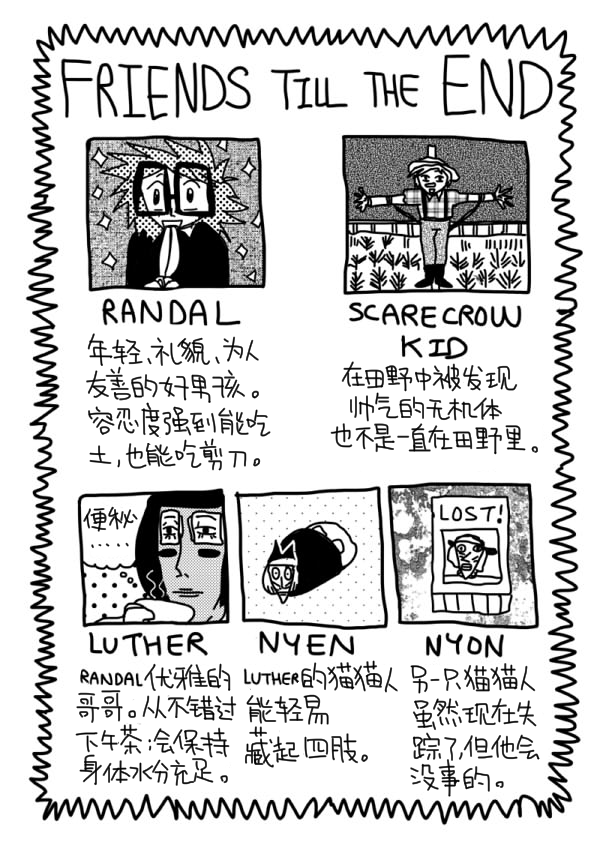 FRIENDS TILL THE END
RANDAL
年轻、礼貌、为人
友善的好男孩。
容忍度强到能吃
土,也能吃剪刀。
SCARECROW
KID
在田野中被发现
帅气的无机体
也不是一直在田野里。
便秘
.....
LUTHER
RANDAL优雅的
哥哥。从不错过
下午茶;会保持
身体水分充足。
NYEN
LUTHER的猫猫人
能轻易
藏起四肢。
LOST!
NYON
另一只猫猫人
虽然现在失
踪了,但他会
没事的。